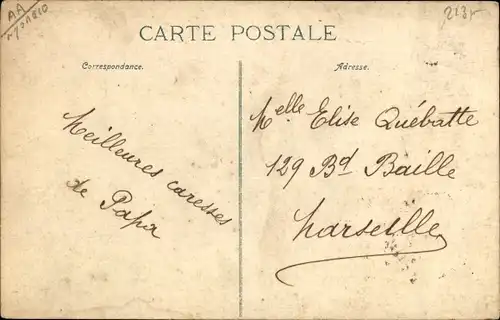 CARTE POSTALE
Correspondance.
Adresse.
Meilleures caresses
de Papa
Melle Elise Québatte
129 Bd Baille
Marseille